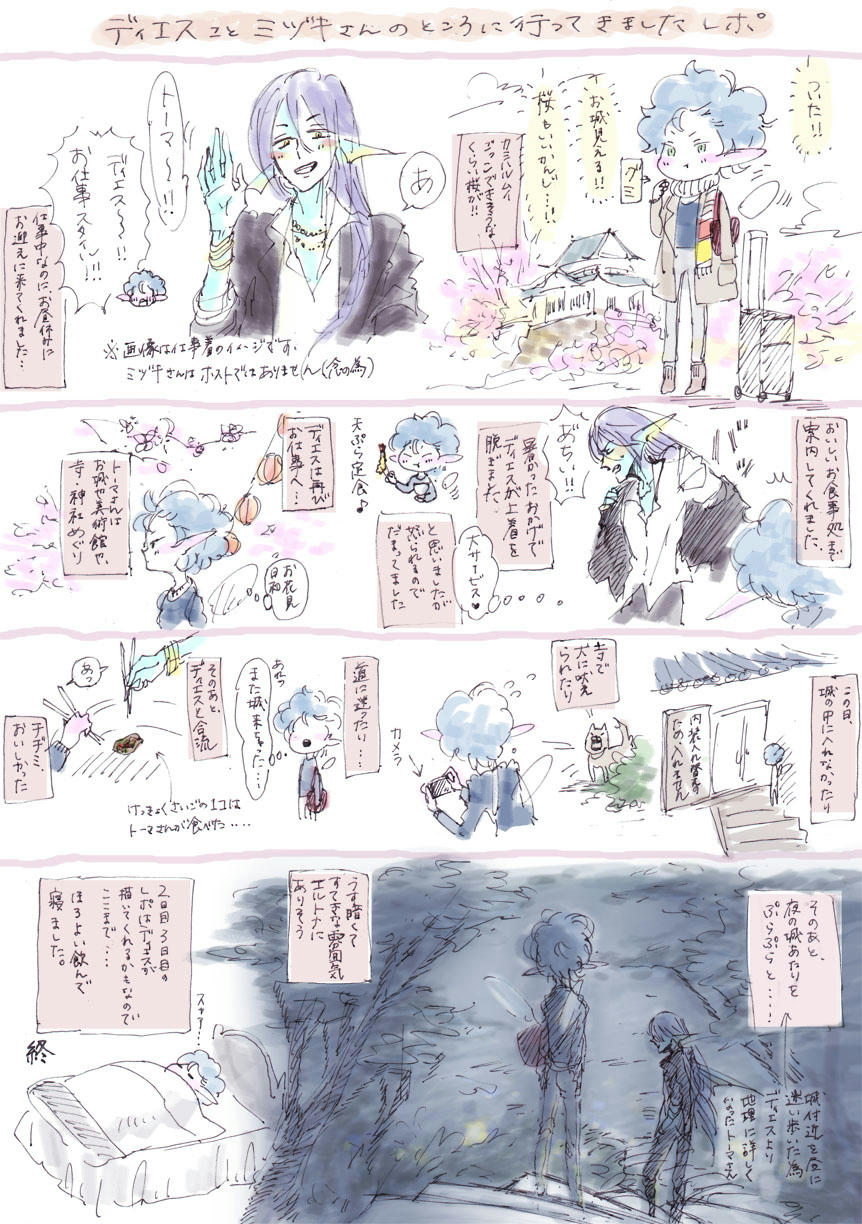 ディエスことミヅキさんのところに行ってきましたレポ。
ついた!!
お城見える!!
桜もいいかんじ…!!
グミ
カミハルムイ
くらい桜が!!
あ
トーマ〜!!
ディエス〜!!
お仕事スタイル!!!
仕事中なのに、お昼休みに
お迎えに来てくれました…
※画像は仕事着のイメージです。
ミヅキさんはホストではありません(念の為)
おいしいお食事処まで
案内してくれました、
あぢぃ!!
暑かったおかげで
ディエスが上着を
脱ぎました、
大サービス♥
と思いましたが
怒られるので
だまってました
天ぷら定食♪
ディエスは再び
お仕事へ…
お花見
日和
トーマさんは
お城や美術館や、
寺神社めぐり
この日、
城の中に入れなかったり
内装入れ替えの
ため入れません
寺で
犬に吠え
られたり
カメラ
道に迷ったり…
あれっ
また城来ちゃった…
そのあと、
ディエスと合流
あっ
けっきょくさいごの1コは
トーマさんが食べた・・・・
チヂミ、
おいしかった
そのあと、
夜の城あたりを
ぷらぷらと…!
城付近を昼に
迷い歩いた為
ディエスより
地理に詳しく
なったトーマさん
うす暗くて
すてきな雰囲気
エルトナに
ありそう
2日目3日目の
レポはディエスが
描いてくれるかもなので
ここまで・・・・
ほろよい飲んで
寝ました。
スヤァ…
終